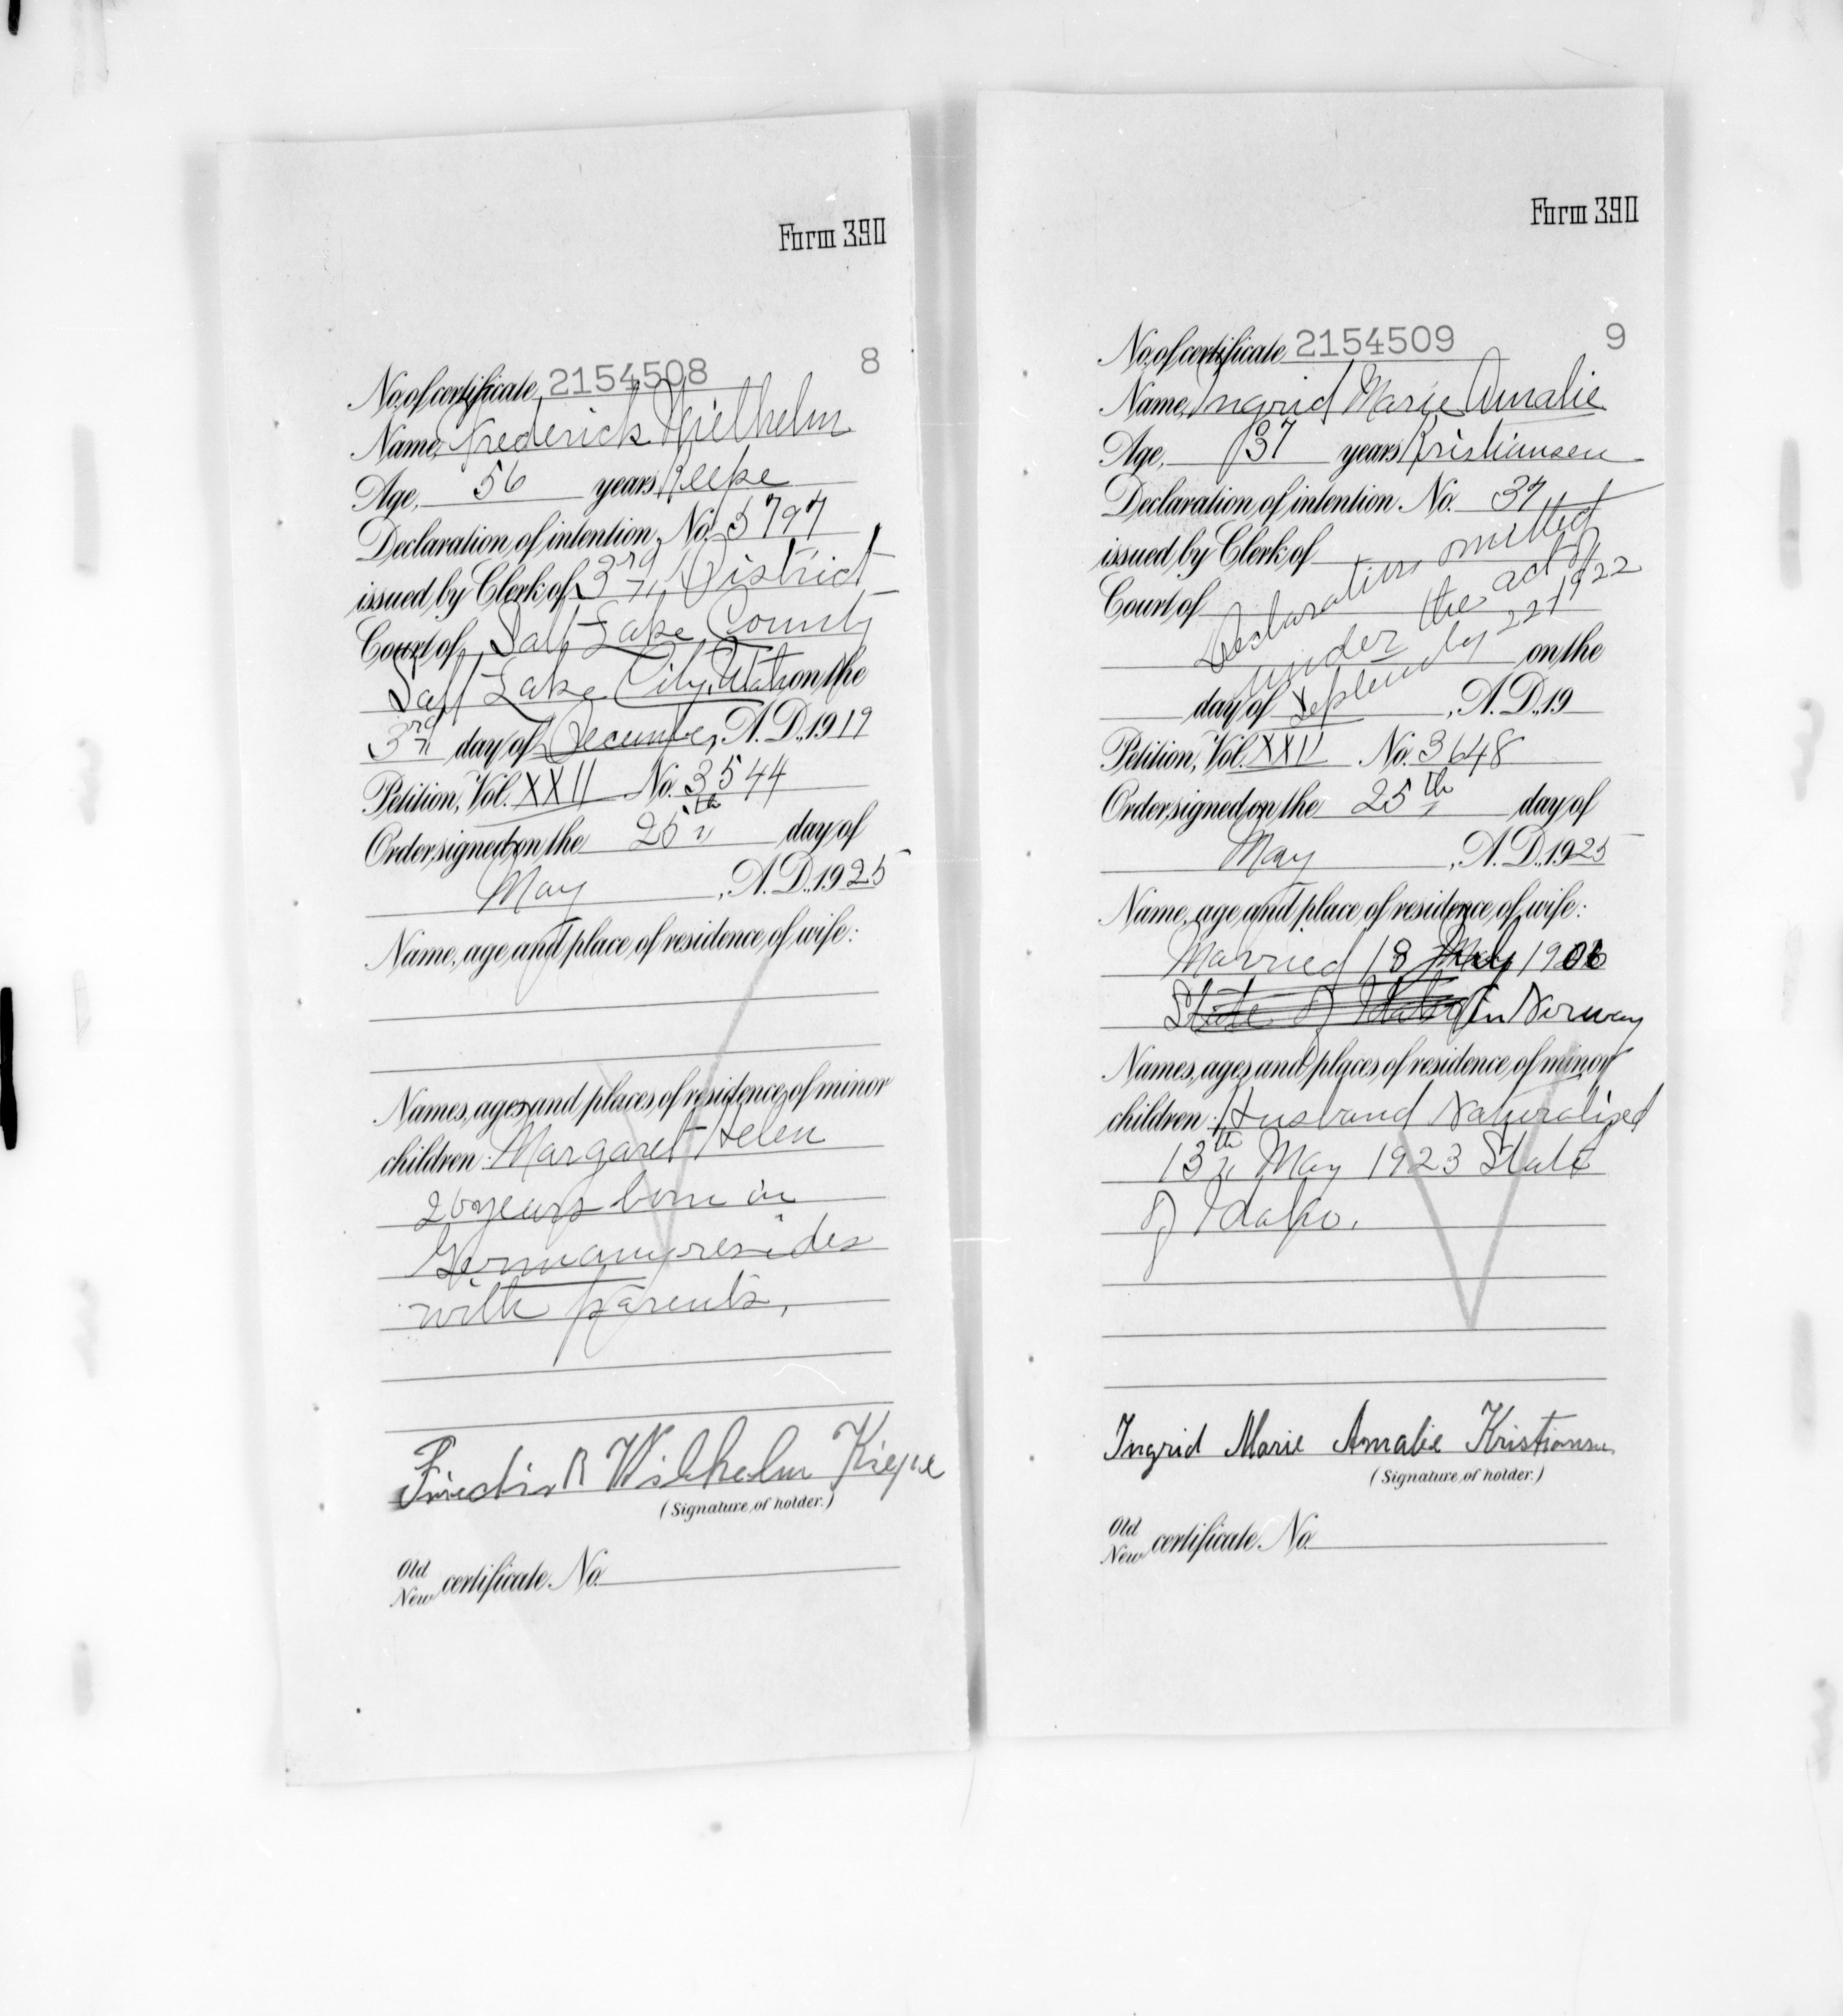 Form 390
8
No. of certificate 2154508
Name, Frederick Wielhelm
Age, 56 years Keepe
Declaration of intention, No. 3797
issued by Clerk of 3rd District
Court of Salt Lake County
Salt Lake City, Utah on the
3rd day of December, A.D. 1919
Petition, Vol. XXII No. 3544
Order signed on the 25th day of
May, A.D. 1925
Name, age and place of residence of wife:
Names, ages and places of residence of minor
children: Margaret Helen
20 years born in
Germany resides
with parents,
Wilhelm Kiepe
(Signature of holder.)
Old
New certificate No.
Form 390
9
No. of certificate 2154509
Name, Ingrid Marie Amalie
Age, 37 years Kristiansen
Declaration of intention No. 37
issued by Clerk of
Court of
on the
day of , A.D. 19
Declaration omitted
under the act of
September 22 1922
Petition, Vol. XXII No. 3648
Order signed on the 25th day of
May, A.D. 1925
Name, age and place of residence of wife:
Married 18 May 1906
State of Idaho in Norway
Names, ages and places of residence of minor
children: Husband Naturalized
13th May 1923 State
of Idaho.
Ingrid Marie Amalie Kristiansen
(Signature of holder.)
Old
New certificate No.